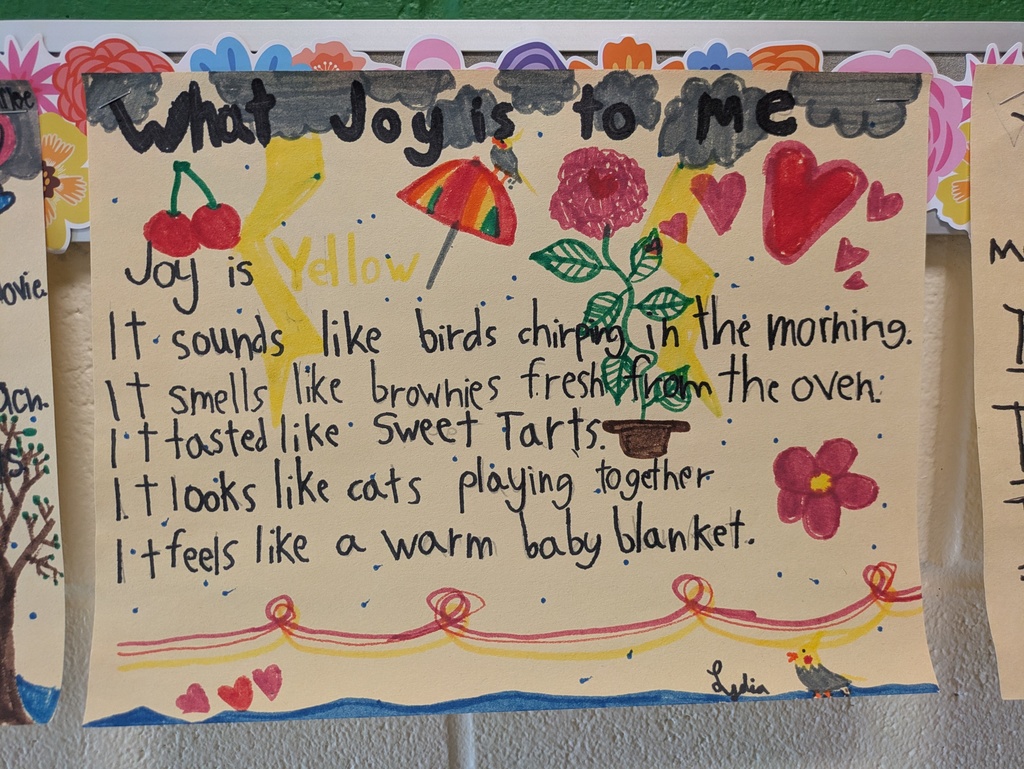 What Joy is to Me
Joy is Yellow
It sounds like birds chirping in the morning.
It smells like brownies fresh from the oven.
It tasted like Sweet Tarts.
It looks like cats playing together
It feels like a warm baby blanket.
Lydia